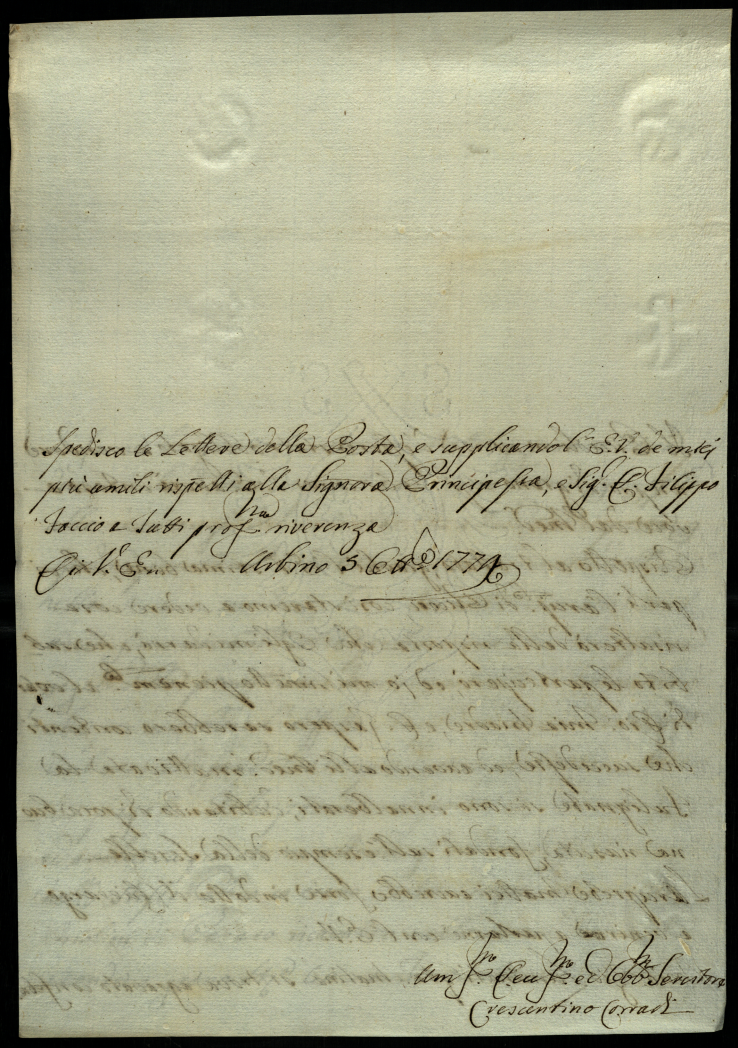 Spedisco le Lettere della Posta, e supplicando l'E.V. de miei
più umili rispetti alla Signora Principessa, e Sig.r C. Filippo
faccio a tutti prof.ma riverenza
Di V. E. Urbino 5 Ott.e 1774
Um.mo Dev.mo ed Obb.mo Servitore
Crescentino Corradi